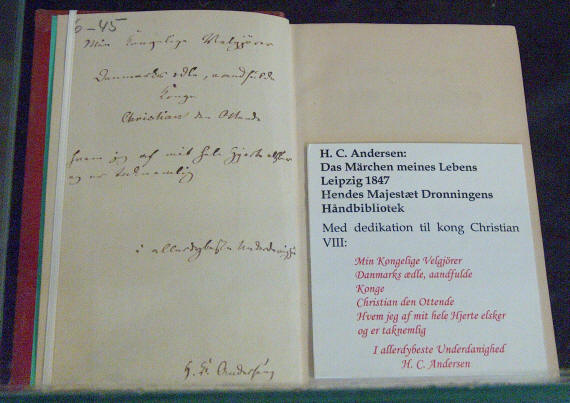 6-45
Min Kongelige Velgjörer
Danmarks ædle, aandfulde
Konge
Christian den Ottende
hvem jeg af mit hele Hjerte elsker
og er taknemlig
i allerdybeste Underdanighed
H. C. Andersen
H. C. Andersen:
Das Märchen meines Lebens
Leipzig 1847
Hendes Majestæt Dronningens
Håndbibliotek
Med dedikation til kong Christian
VIII:
Min Kongelige Velgjörer
Danmarks ædle, aandfulde
Konge
Christian den Ottende
Hvem jeg af mit hele Hjerte elsker
og er taknemlig
I allerdybeste Underdanighed
H. C. Andersen